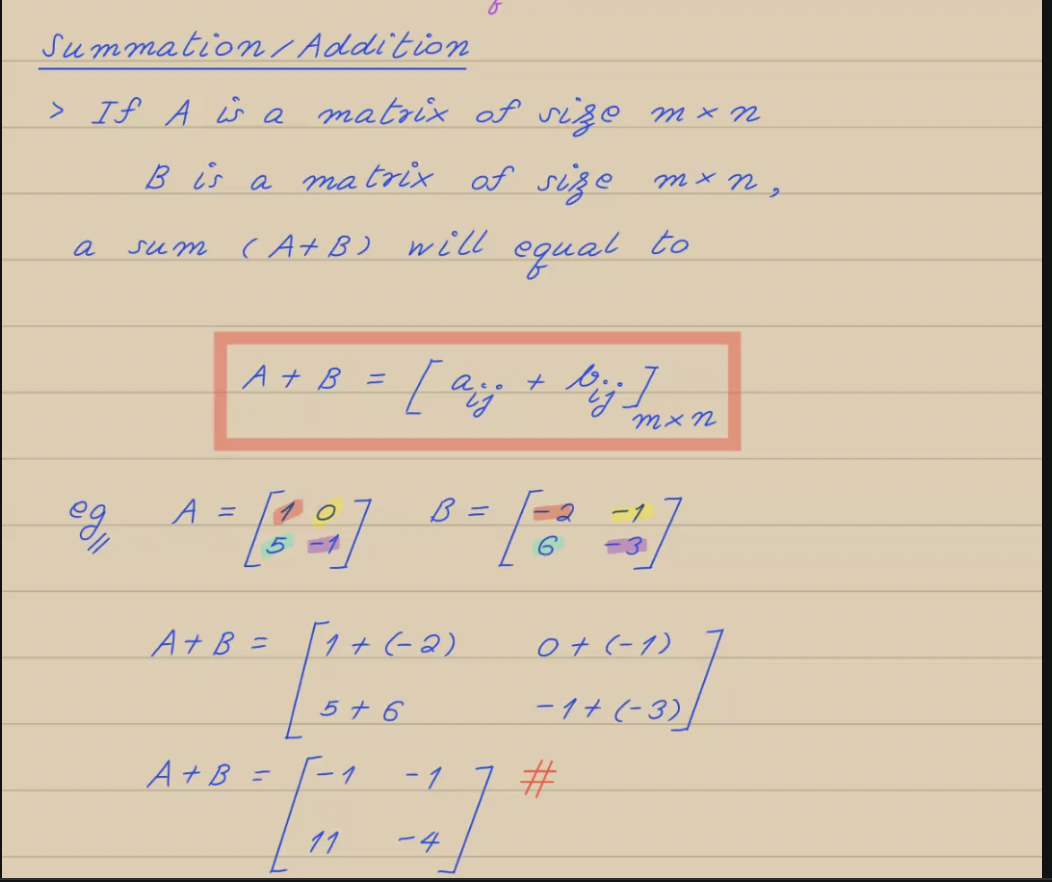 Summation/Addition
> If A is a matrix of size m × n
B is a matrix of size m × n,
a sum (A+B) will equal to
A + B = [ a_ij + b_ij ]_m×n
eg A = [ 1 0 ] B = [ -2 -1 ]
5 -1 6 -3
A+B = [ 1 + (-2) 0 + (-1) ]
5 + 6 -1 + (-3)
A+B = [ -1 -1 ] #
11 -4